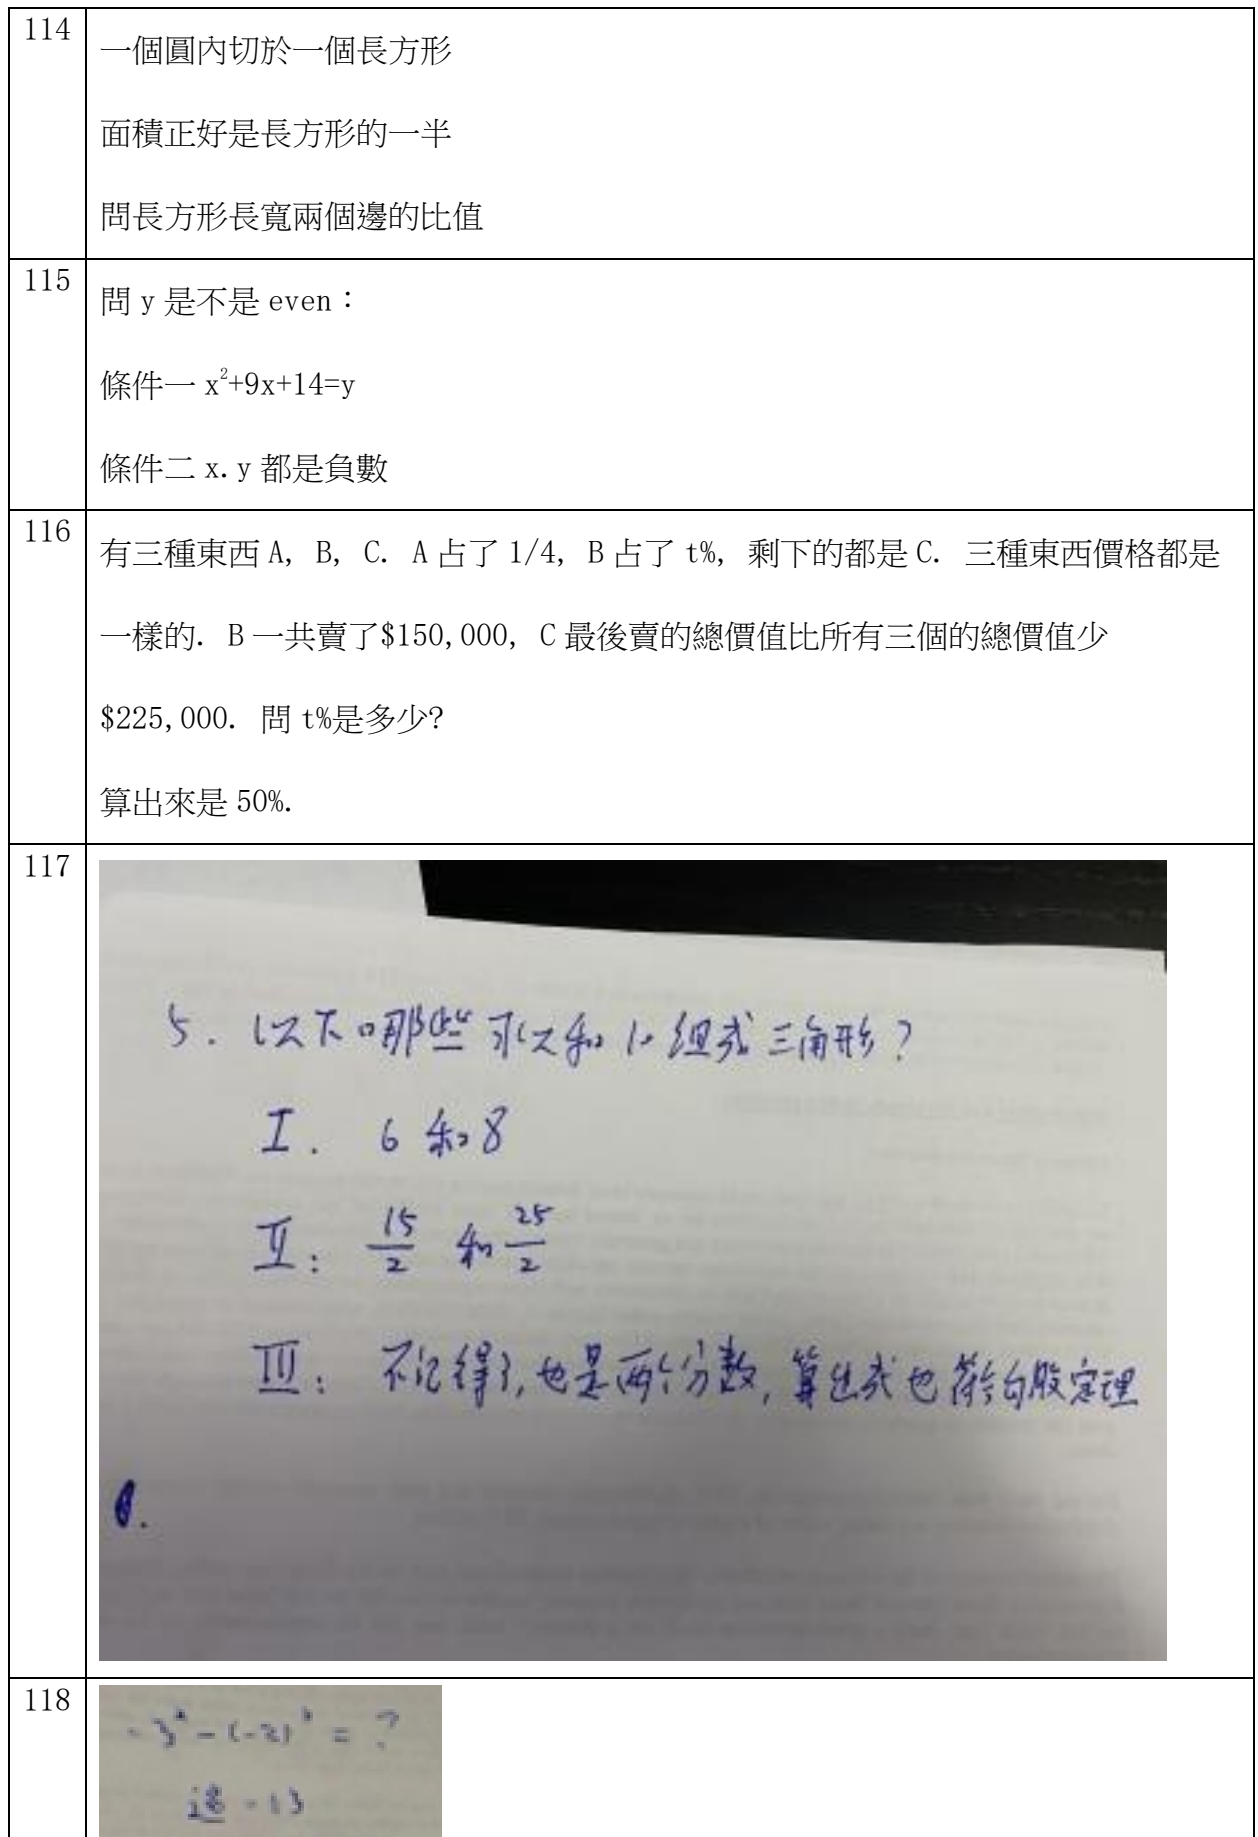 114
一個圓內切於一個長方形
面積正好是長方形的一半
問長方形長寬兩個邊的比值
115
問 y 是不是 even：
條件一 x²+9x+14=y
條件二 x.y 都是負數
116
有三種東西 A, B, C. A 占了 1/4, B 占了 t%, 剩下的都是 C. 三種東西價格都是
一樣的. B 一共賣了$150,000, C 最後賣的總價值比所有三個的總價值少
$225,000. 問 t%是多少?
算出來是 50%.
117
5. 以下哪些可以和 10 组成三角形?
I. 6 和 8
II: 15/2 和 25/2
III: 不记得了, 也是两个分数, 算出来也符合勾股定理
118
= ?
选 -13